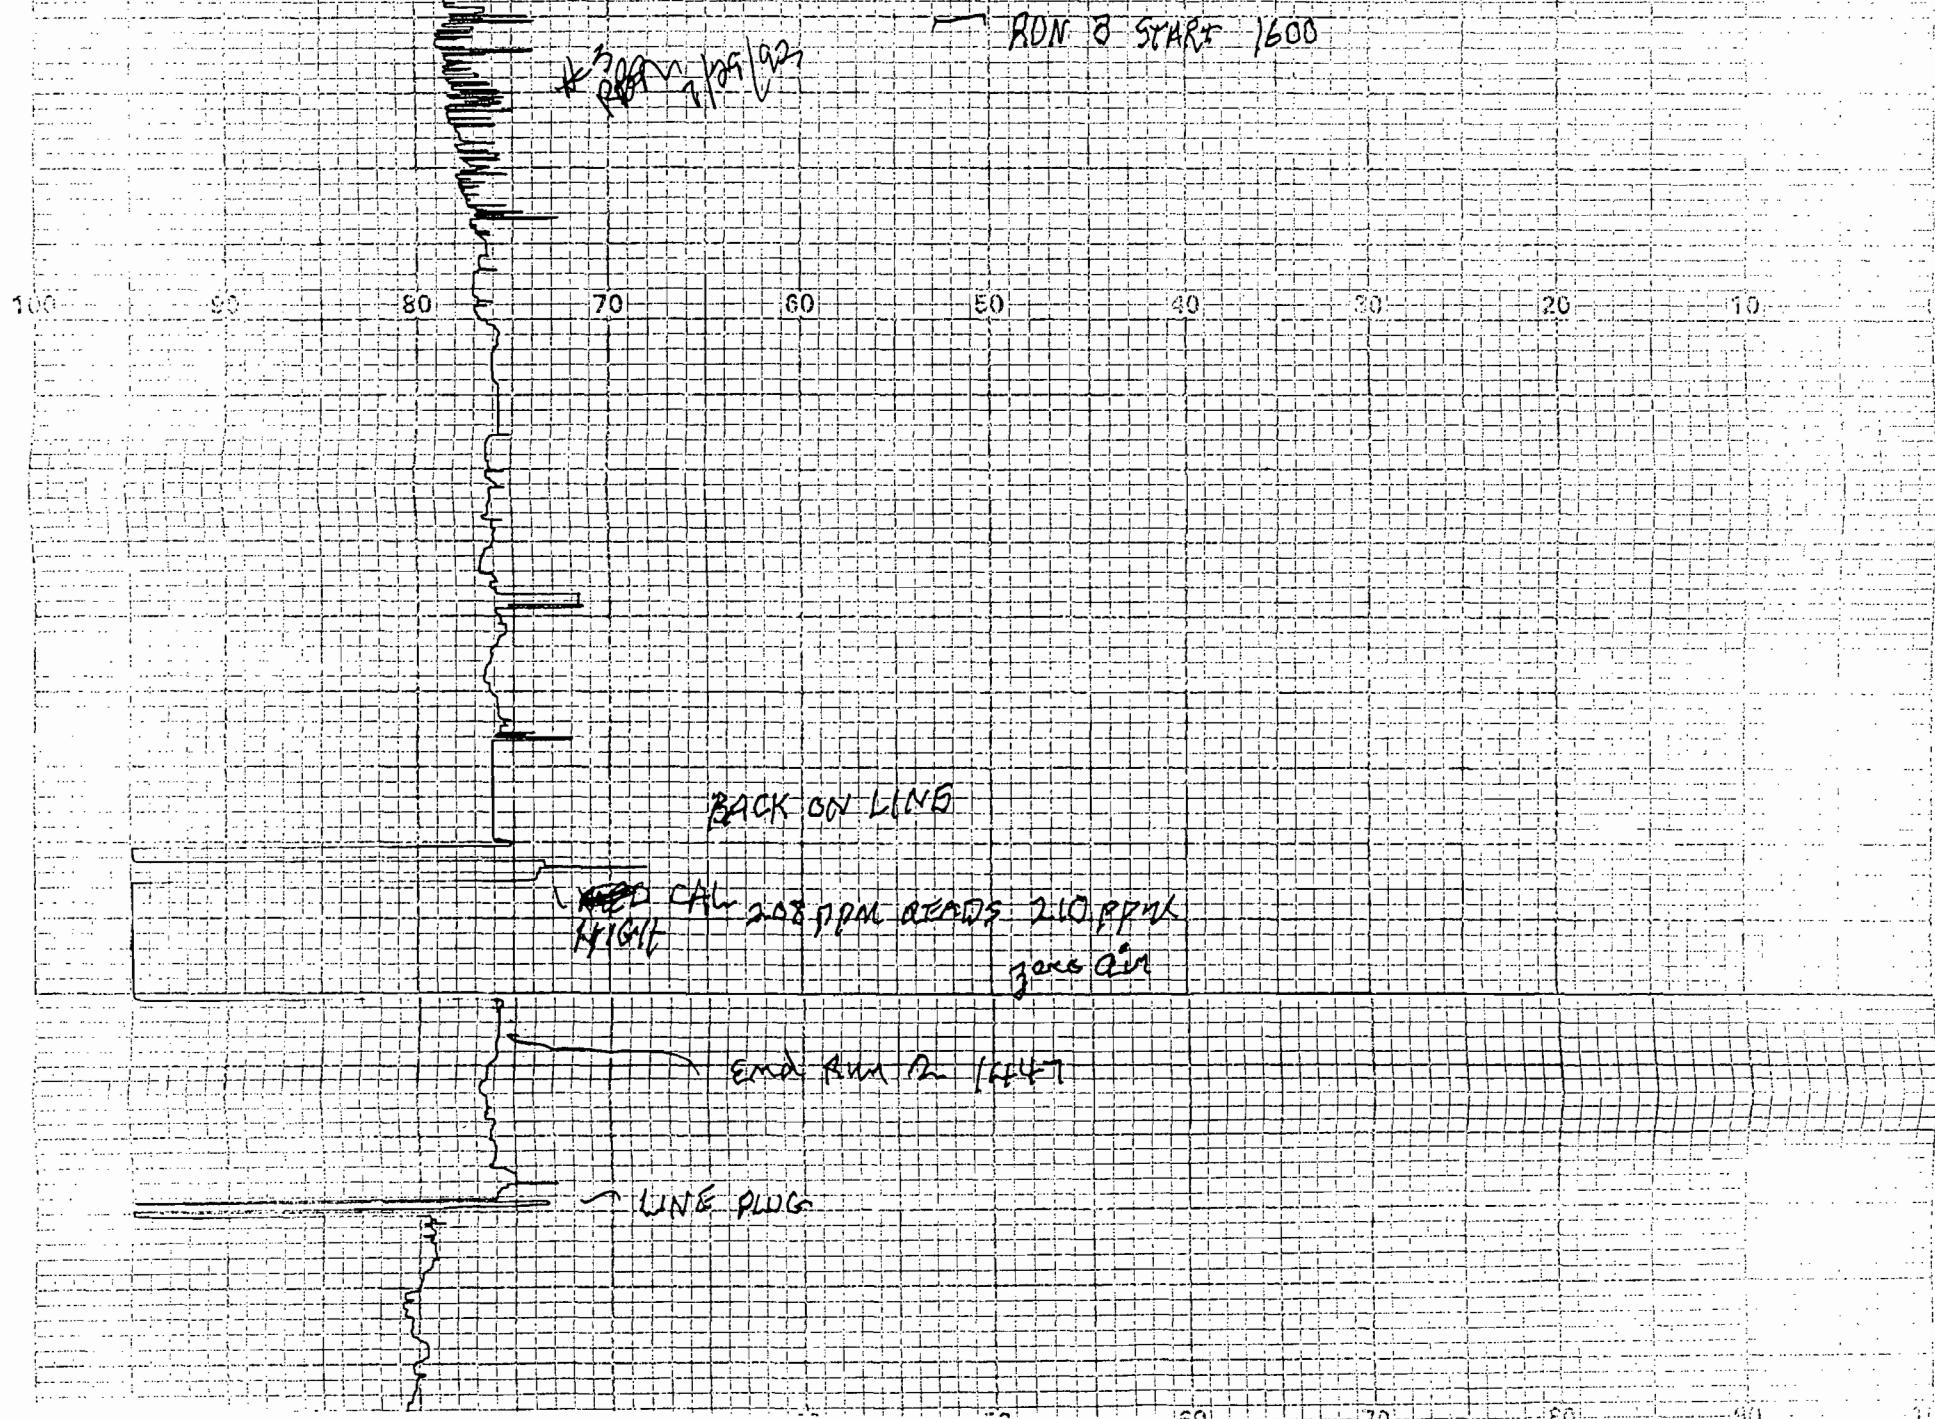 RUN 3 START 1600
100 90 80 70 60 50 40 30 20 10
BACK ON LINE
CAL 208 PPM READS 210 PPM
HIGH
zero air
End Run 2 1447
LINE PLUG